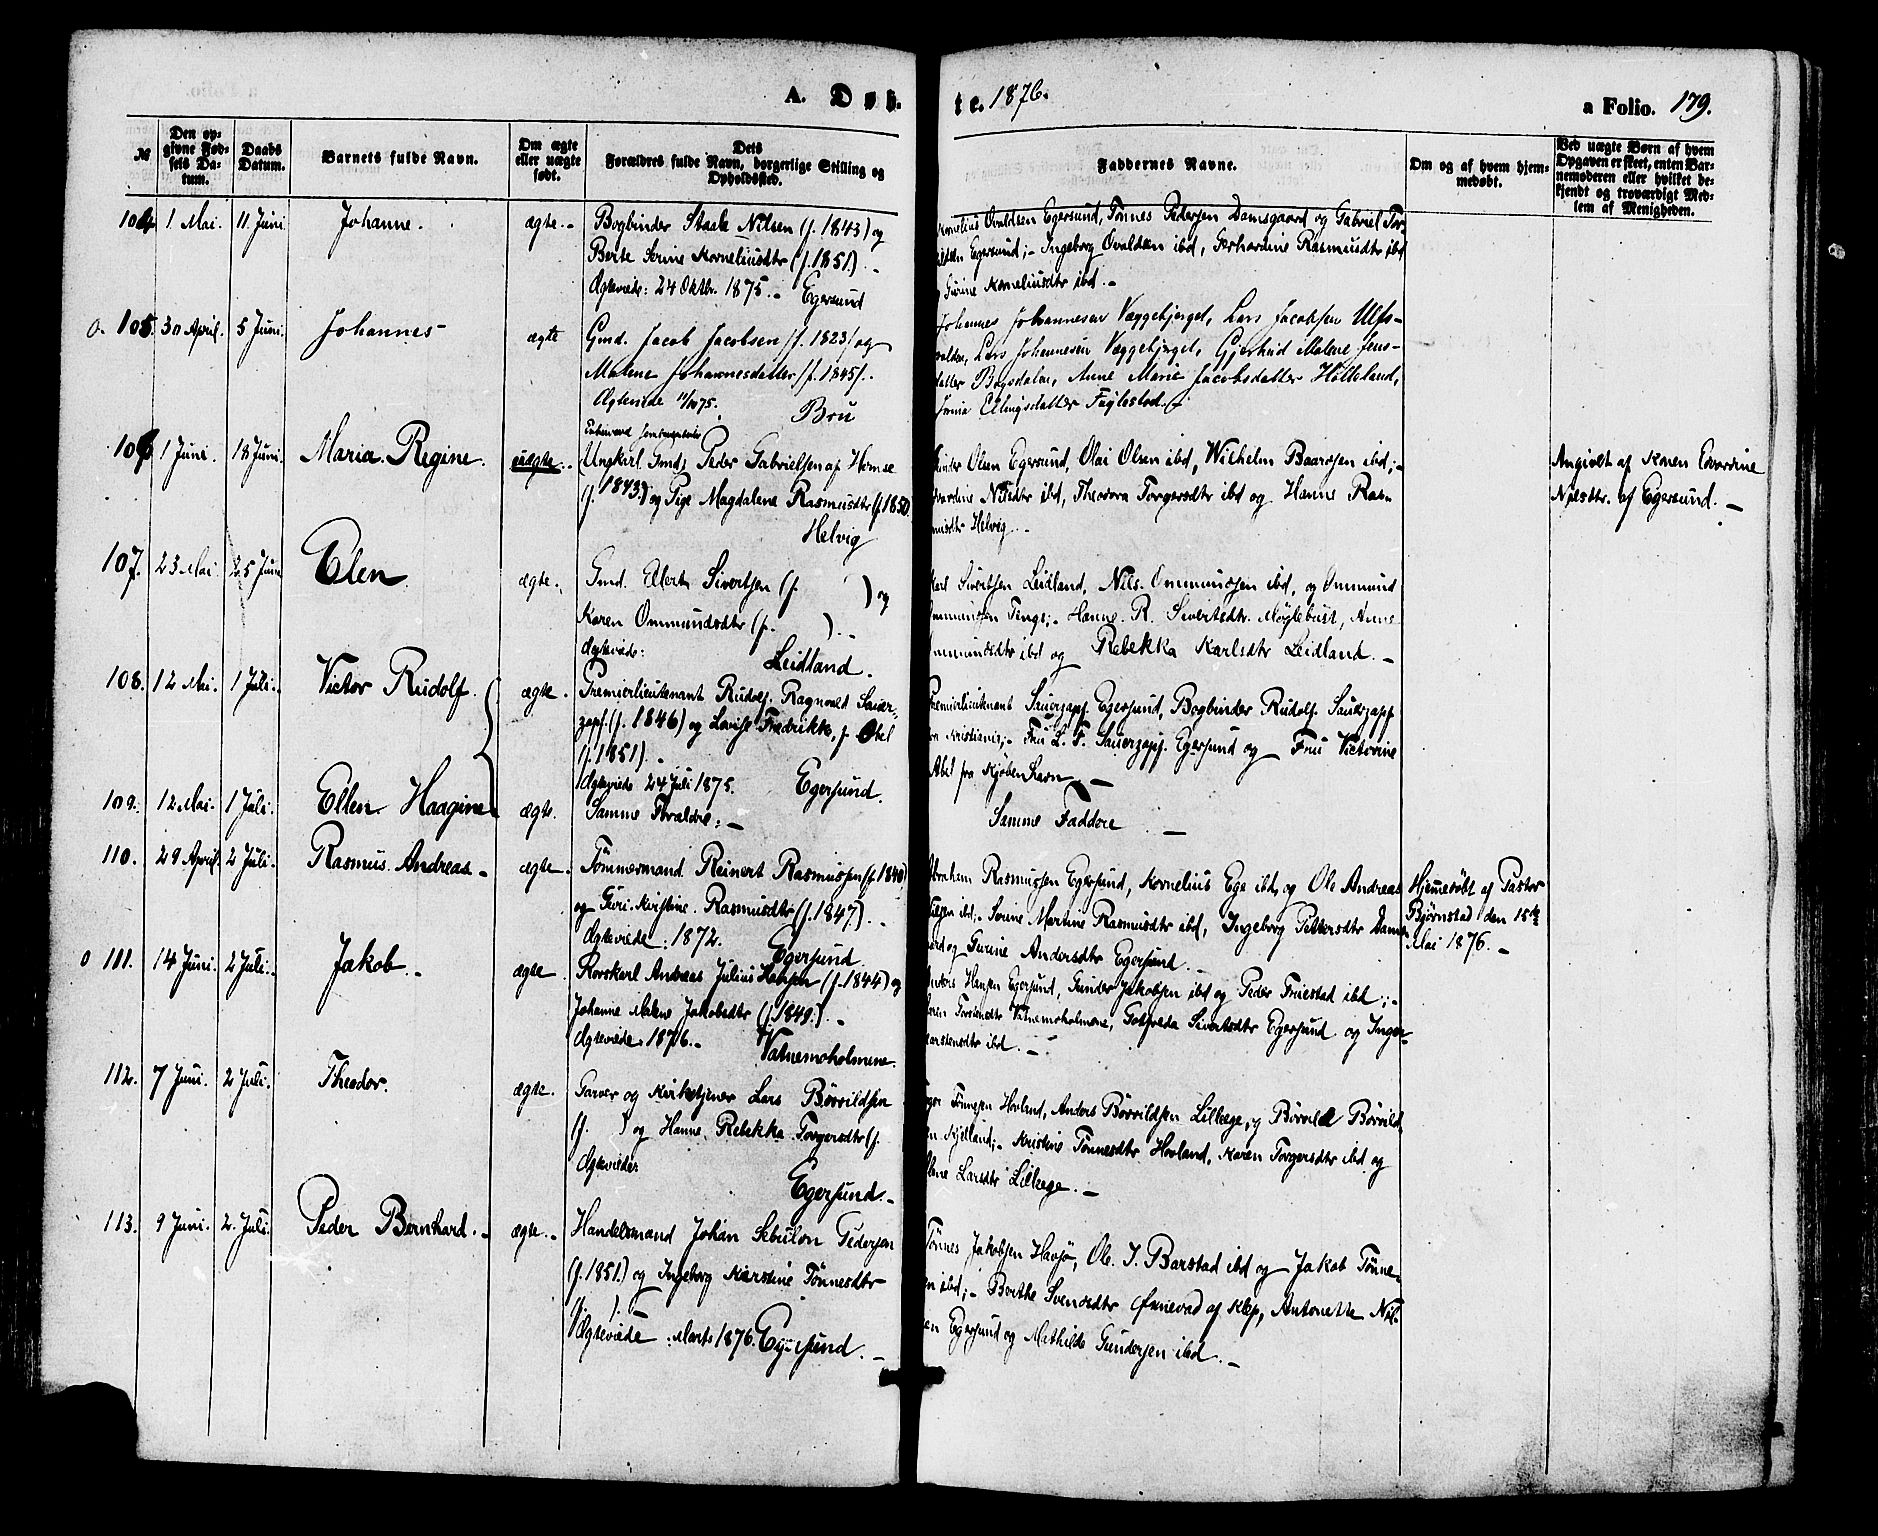 A. Døb-
te. 1876.
a Folio. 179.
№
Den op-
givne Fød-
sels Da-
tum.
Daabs
Datum.
Barnets fulde Navn.
Om ægte
eller uægte
født.
Dets
Forældres fulde Navn, borgerlige Stilling og
Opholdssted.
Faddernes Navne.
Om og af hvem hjem-
medøbt.
Ved uægte Børn af hvem
Opgaven er skeet, enten Bar-
nemoderen eller hvilket be-
kjendt og troværdigt Med-
lem af Menigheden.
104. 1 Mai. 11 Juni Johanne. ægte.-
Bogbinder Staale Nilsen (f. 1843) og
Berte Serine Korneliusdtr (f. 1851). -
Ægteviede: 24 Oktbr. 1875. - Egersund
Kornelius Ovaldsen Egersund, Tønnes Pedersen Damsgaard og Gabriel Tor-
Egersund;- Ingeborg Ovaldsen ibd, Gerhardine Rasmusdtr ibd
Gurine Korneliusdtr ibd.-
o. 105. 30 April. 5 Juni. Johannes ægte
Gmd. Jacob Jacobsen (f. 1823) og
Malene Johannesdatter (f. 1845).
Ægteviede 75. Bru
Johannes Johannesen Væggebjerget, Lars Jacobsen Ulfs-
valden, Lars Johannesen Væggebjerget, Gjertrud Malene Jens-
datter Bogsdalen, Anne Marie Jacobsdatter Hilleland,
Ellingsdatter Fuglestad.
106. 1 Juni. 18 Juni. Maria Regine. uægte.
Ungkarl Gmds. Peder Gabrielsen af Homse
(f. 1843.) og Pige Magdalene Rasmusdtr (f. 1850)
Helvig
Olsen Egersund, Olai Olsen ibd, Wilhelm Baarsen ibd;-
Edvardine Nilsdtr ibd, Theodora Torgersdtr ibd og Hanne Ras-
musdtr Helvig.-
Angivelt af Konen Edvardine
Nilsdtr. af Egersund. -
107. 23 Mai 25 Juni Elen ægte.
Gmd. Ellert Sivertsen (f. ) og
Karen Ommundsdtr (f. ). -
Ægteviede: Leidland.
Karl Sivertsen Leidland, Nils Ommundsen ibd, og Ommund
Ommundsen Tengs;- Hanne R. Sivertsdtr. Møglebust, Anne
Ommundsdtr ibd og Rebekka Karlsdtr Leidland. -
108. 12 Mai. 1 Juli. Victor Rudolf. ægte.
Premierlieutenant Rudolf Ragnvald Sauer-
zapf. (f. 1846) og Lovise Fredrikke, f. Abel
(f. 1851). -
Ægteviede 24 Juli 1875. Egersund.
Premierlieutnant Sauerzapf. Egersund, Bogbinder Rudolf Sauerzapf
fra Kristiania;- Fru L. F. Sauerzapf. Egersund og Fru Victorine
Abel fra Kjøbenhavn -
109. 12 Mai. 1 Juli. Ellen Haagine ægte.
Samme Foraldre. -
Samme Faddere. -
110. 29 April. 2 Juli. Rasmus Andreas. ægte.
Tømmermand Reinert Rasmussen (f. 1840)
og Guri Kirstine Rasmusdtr (f. 1847). -
Ægteviede: 1872. Egersund.
Abraham Rasmussen Egersund, Kornelius Ege ibd, og Ole Andreas
Nilsen ibd;- Serine Martine Rasmusdtr ibd, Ingeborg Pettersdtr Dams-
gaard og Gurine Andersdtr Egersund. -
Hjemmedøbt af Pastor
Bjørnstad den 15de
Mai 1876. -
o 111. 14 Juni 2 Juli. Jakob. ægte.
Rorskarl Andreas Julius Hansen (f. 1844) og
Johanne Malene Jakobsdtr (f. 1849.). -
Ægteviede. 1876. - Vatnemoholmene.
Anders Hansen Egersund, Gunder Jakobsen ibd og Peder Friestad ibd;-
Karen Torstensdtr Vatnemoholmene, Gotfreda Sivertsdtr Egersund og Inger-
Karstensdtr ibd. -
112. 7 Juni. 2 Juli. Theodor. ægte.
Garver og Kirketjener Lars Børrildsen
(f. ) og Hanne Rebekka Torgersdtr (f.
Ægteviede: Egersund. -
Torger Tønnesen Hovland, Anders Børrildsen Lilleege, og Børrild Børrild-
sen Kjelland;- Kristine Tønnesdtr Hovland, Karen Torgersdtr ibd og
Larsdtr Lilleege. -
113. 9 Juni. 2. Juli. Peder Bernhard. ægte.-
Handelsmand Johan Sebulon Pedersen
(f. 1851.) og Ingeborg Karstine Tønnesdtr
(f. ). -
Ægteviede: Marts 1876. Egersund. -
Tønnes Jakobsen Havsø, Ole I. Barstad ibd og Jakob Tønne-
sen ibd;- Berthe Svendsdtr Ørnevad af Klep, Antonette Nil-
sen Egersund og Mathilde Gundersen ibd. -